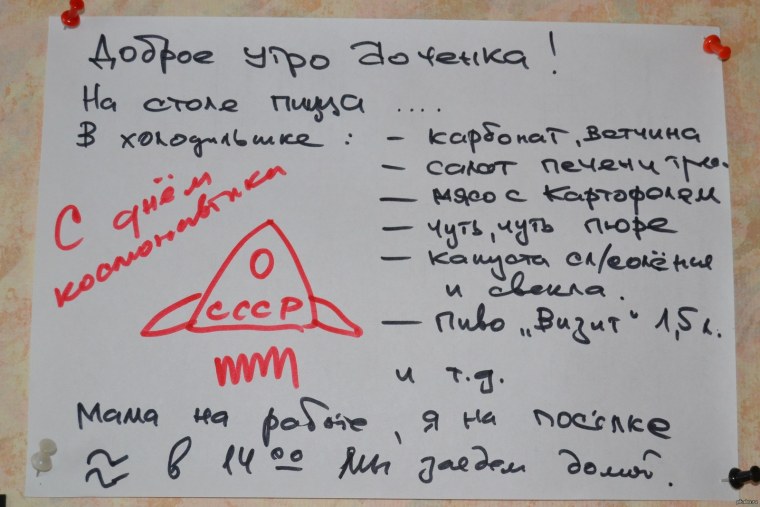 Доброе утро доченка!
На столе пицца ....
В холодильнике : – карбонат, ветчина
– салат печени тре.
– мясо с картофелем
– чуть, чуть пюре
– капуста сл/соления
и свекла.
– Пиво „Визит“ 1,5 л.
и т.д.
С днём
космонавтика
О
СССР
Мама на работе, я на посылке
≈ в 14 00 мы заедем домой.